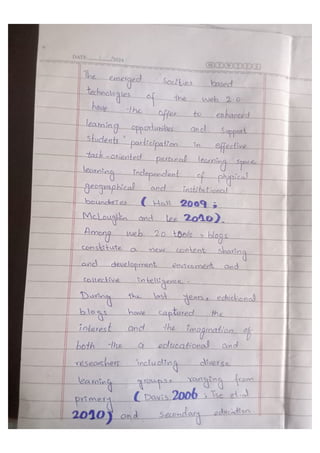 DATE
The emerged Socities based
technologies of the web 2.0
have the offer to enhanced
learning opportunities and support
students' participation in effective
task-oriented personal learning space
learning independent of physical
geographical and institutional
boundries (Hall 2009;
McLoughlin and Lee 2010).
Among web 2.0 tools, blogs
constitute a new content sharing
and development enviroment and
collective intelligence.
During the last years, eductional
blogs have captured the
interest and the imagination of
both the a educational and
researchers including diverse
learning groups ranging from
primery (Davis 2006; Tse et al
2010) and secondary eduction